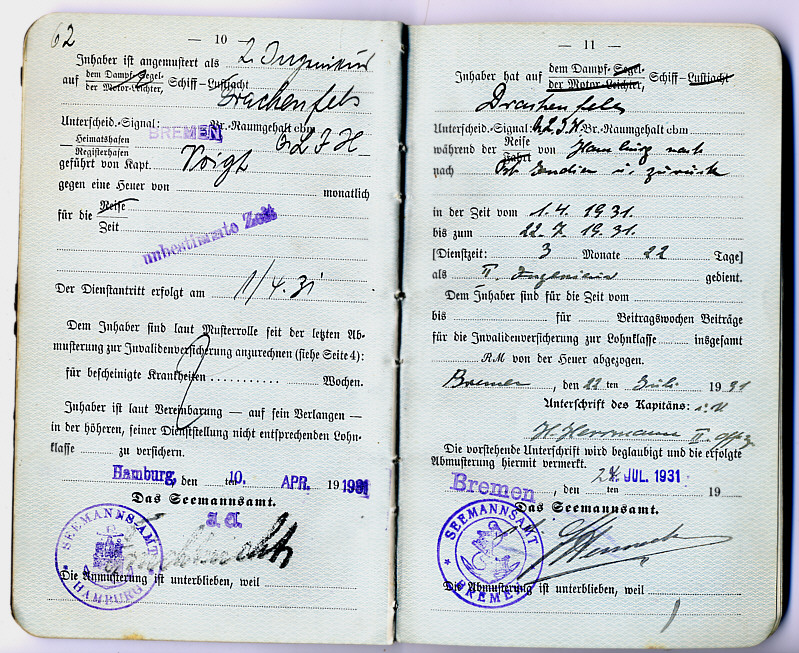 62
— 10 —
Inhaber ist angemustert als 2. Ingenieur
auf dem Dampf-Segel- Schiff-Lustjacht
der Motor-Leichter,
Drachenfels
Unterscheid.-Signal: Br.-Raumgehalt cbm
BREMEN
Heimatshafen
Registerhafen
geführt von Kapt. Voigt
gegen eine Heuer von monatlich
für die Reise
Zeit
unbestimmte Zeit
Der Dienstantritt erfolgt am 1/4.31
Dem Inhaber sind laut Musterrolle seit der letzten Ab-
musterung zur Invalidenversicherung anzurechnen (siehe Seite 4):
für bescheinigte Krankheiten .......... Wochen.
Inhaber ist laut Vereinbarung — auf sein Verlangen —
in der höheren, seiner Dienststellung nicht entsprechenden Lohn-
klasse ........ zu versichern.
Hamburg, den 10. ten APR. 19 1931
Das Seemannsamt.
J. A.
SEEMANNS-AMT
HAMBURG
Die Anmusterung ist unterblieben, weil
— 11 —
Inhaber hat auf dem Dampf-Segel- Schiff-Lustjacht
der Motor-Leichter,
Drachenfels
Unterscheid.-Signal: Br.-Raumgehalt cbm
während der Reise von Hamburg nach
Fahrt
nach Ost Indien u. zurück
in der Zeit vom 1.4. 1931.
bis zum 22.7. 1931.
[Dienstzeit: 3 Monate 22 Tage]
als II. Ingenieur gedient.
Dem Inhaber sind für die Zeit vom
bis für Beitragswochen Beiträge
für die Invalidenversicherung zur Lohnklasse insgesamt
RM von der Heuer abgezogen.
Bremen, den 22 ten Juli 1931
Unterschrift des Kapitäns: i.V.
H. Herrmann II. Offz
Die vorstehende Unterschrift wird beglaubigt und die erfolgte
Abmusterung hiermit vermerkt.
Bremen, den 24. JUL. 1931 ten 19
Das Seemannsamt.
SEEMANNSAMT
BREMEN
Die Abmusterung ist unterblieben, weil